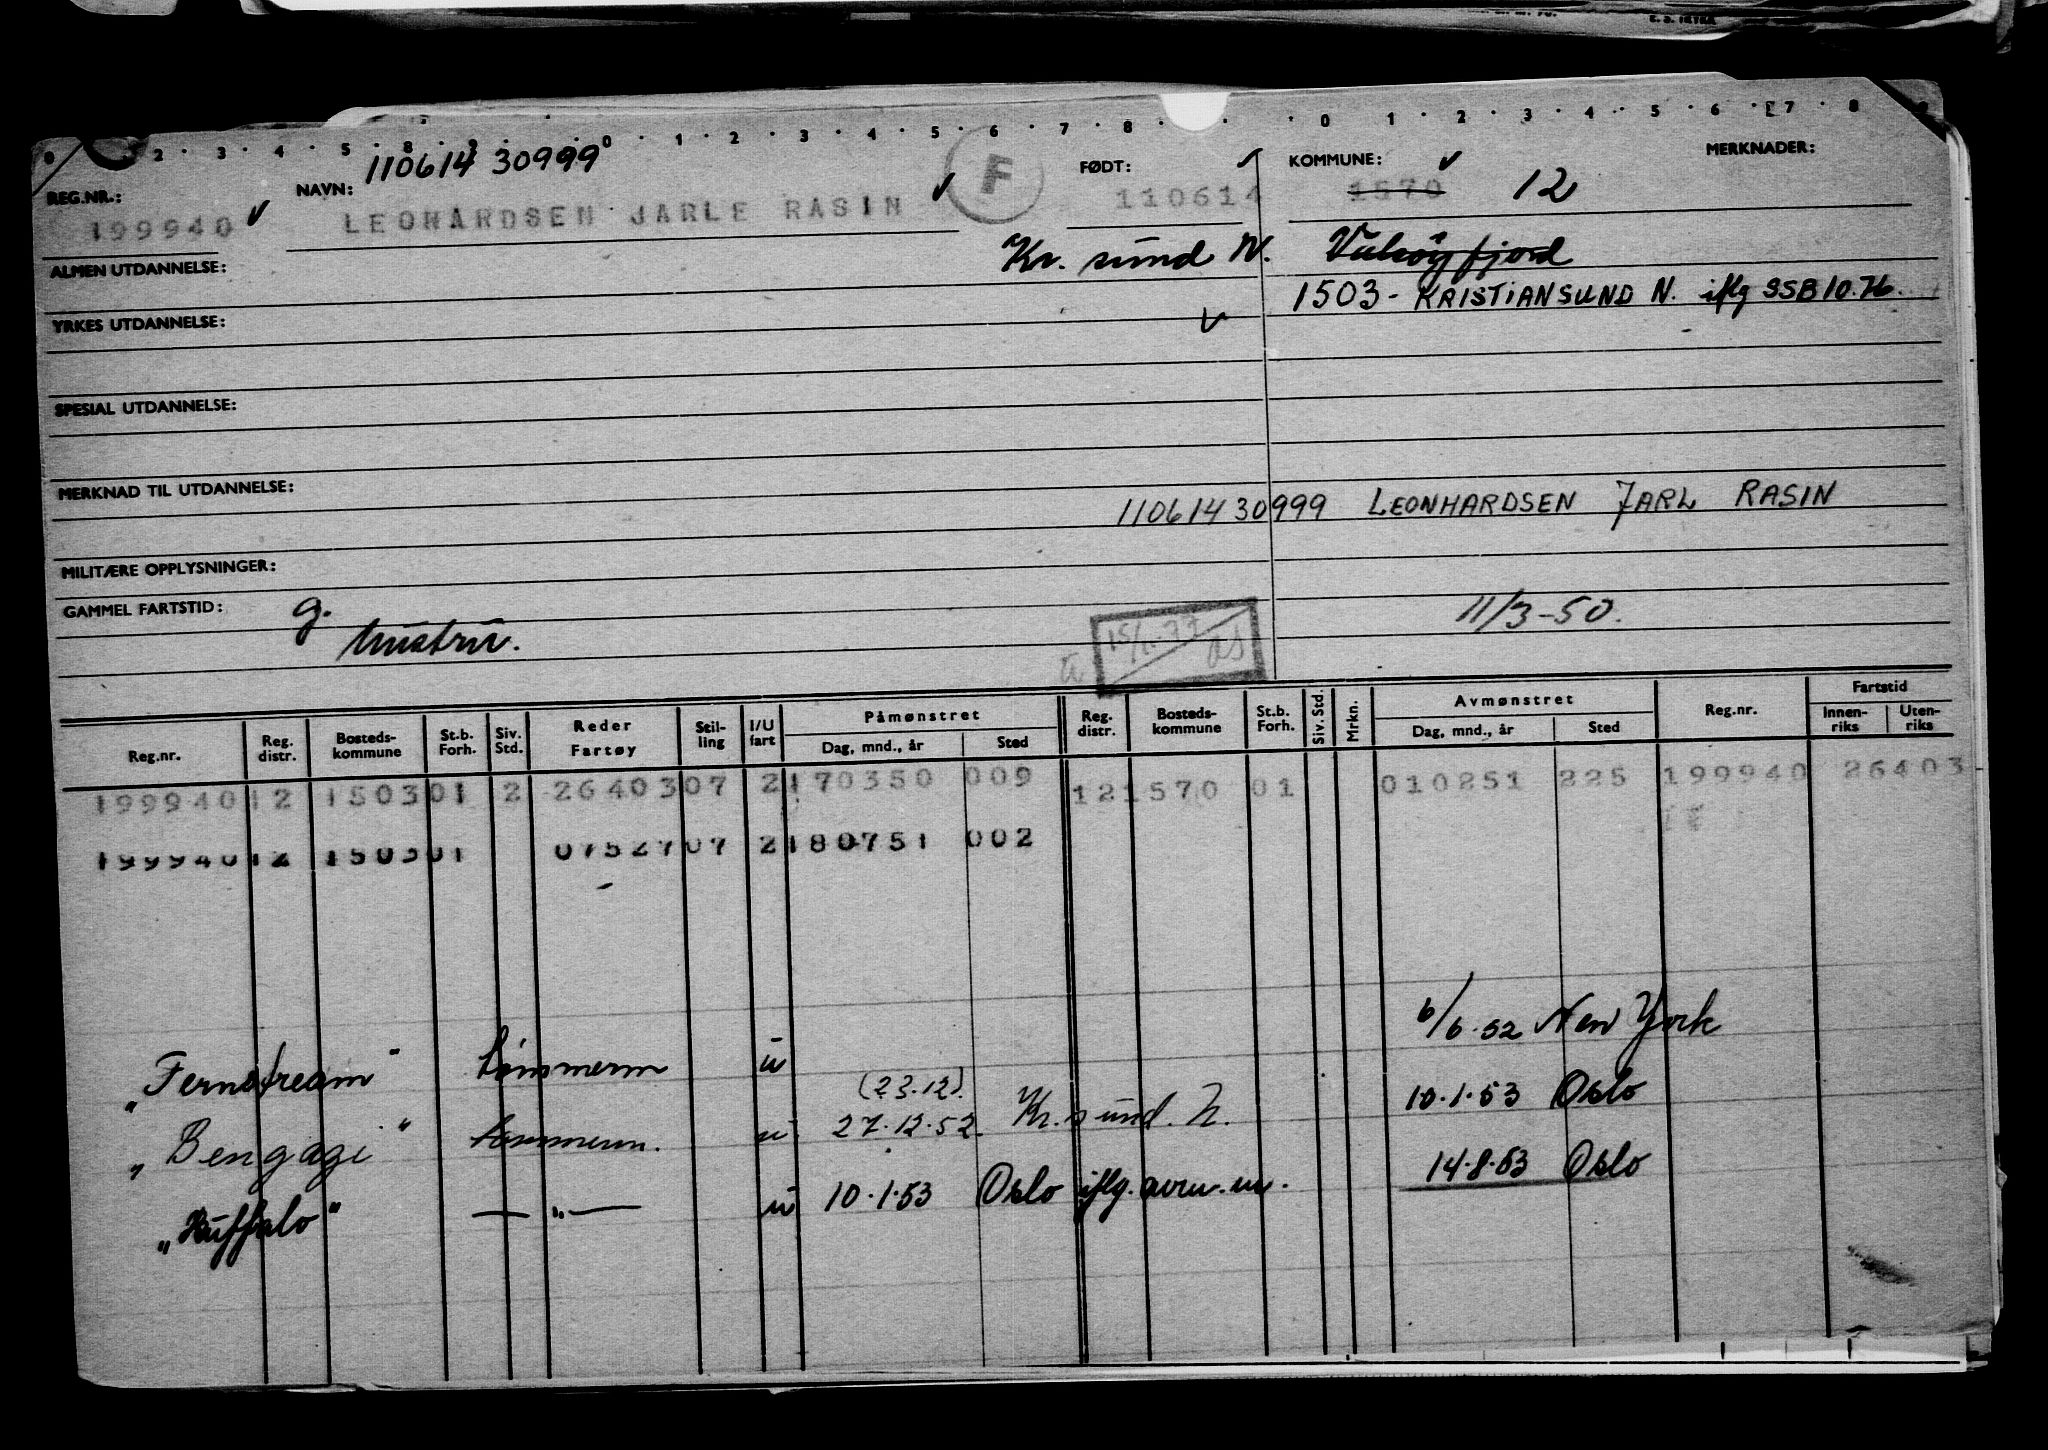 0 2 3 4 5 8 9 0 1 2 3 4 5 6 7 8 0 1 2 3 4 5 6 7 8
110614 30999
REG.NR.: NAVN: FØDT: KOMMUNE: MERKNADER:
199940 LEONARDSEN JARLE RASIN F 110614 1570 12
ALMEN UTDANNELSE: Kr. sund N.
1503 - KRISTIANSUND N. iflg SSB 10.76.
YRKES UTDANNELSE:
SPESIAL UTDANNELSE:
MERKNAD TIL UTDANNELSE:
110614 30999 LEONHARDSEN JARL RASIN
MILITÆRE OPPLYSNINGER:
GAMMEL FARTSTID: g. 11/3-50.
hustru.
Reg.nr. Reg. distr. Bosteds-kommune St.b. Forh. Siv. Std. Reder Fartøy Stil-ling I/U fart Påmønstret Dag, mnd., år Sted Reg. distr. Bosteds-kommune St.b. Forh. Siv. Std. Mrkn. Avmønstret Dag, mnd., år Sted Reg.nr. Fartstid Innen-riks Uten-riks
199940 12 1503 01 2 26403 07 2 170350 009 12 1570 01 010251 225 199940 26403
199940 12 1503 01 07527 07 2 180751 002
"Fernstream" tømmerm u 6/6.52 New York
(23.12).
"Bengazi" tømmerm. u 27.12.52. Kr.sund. N. 10.1.53 Oslo
"Buffalo" — " — u 10.1.53 Oslo iflg. avm. m. 14.8.53 Oslo